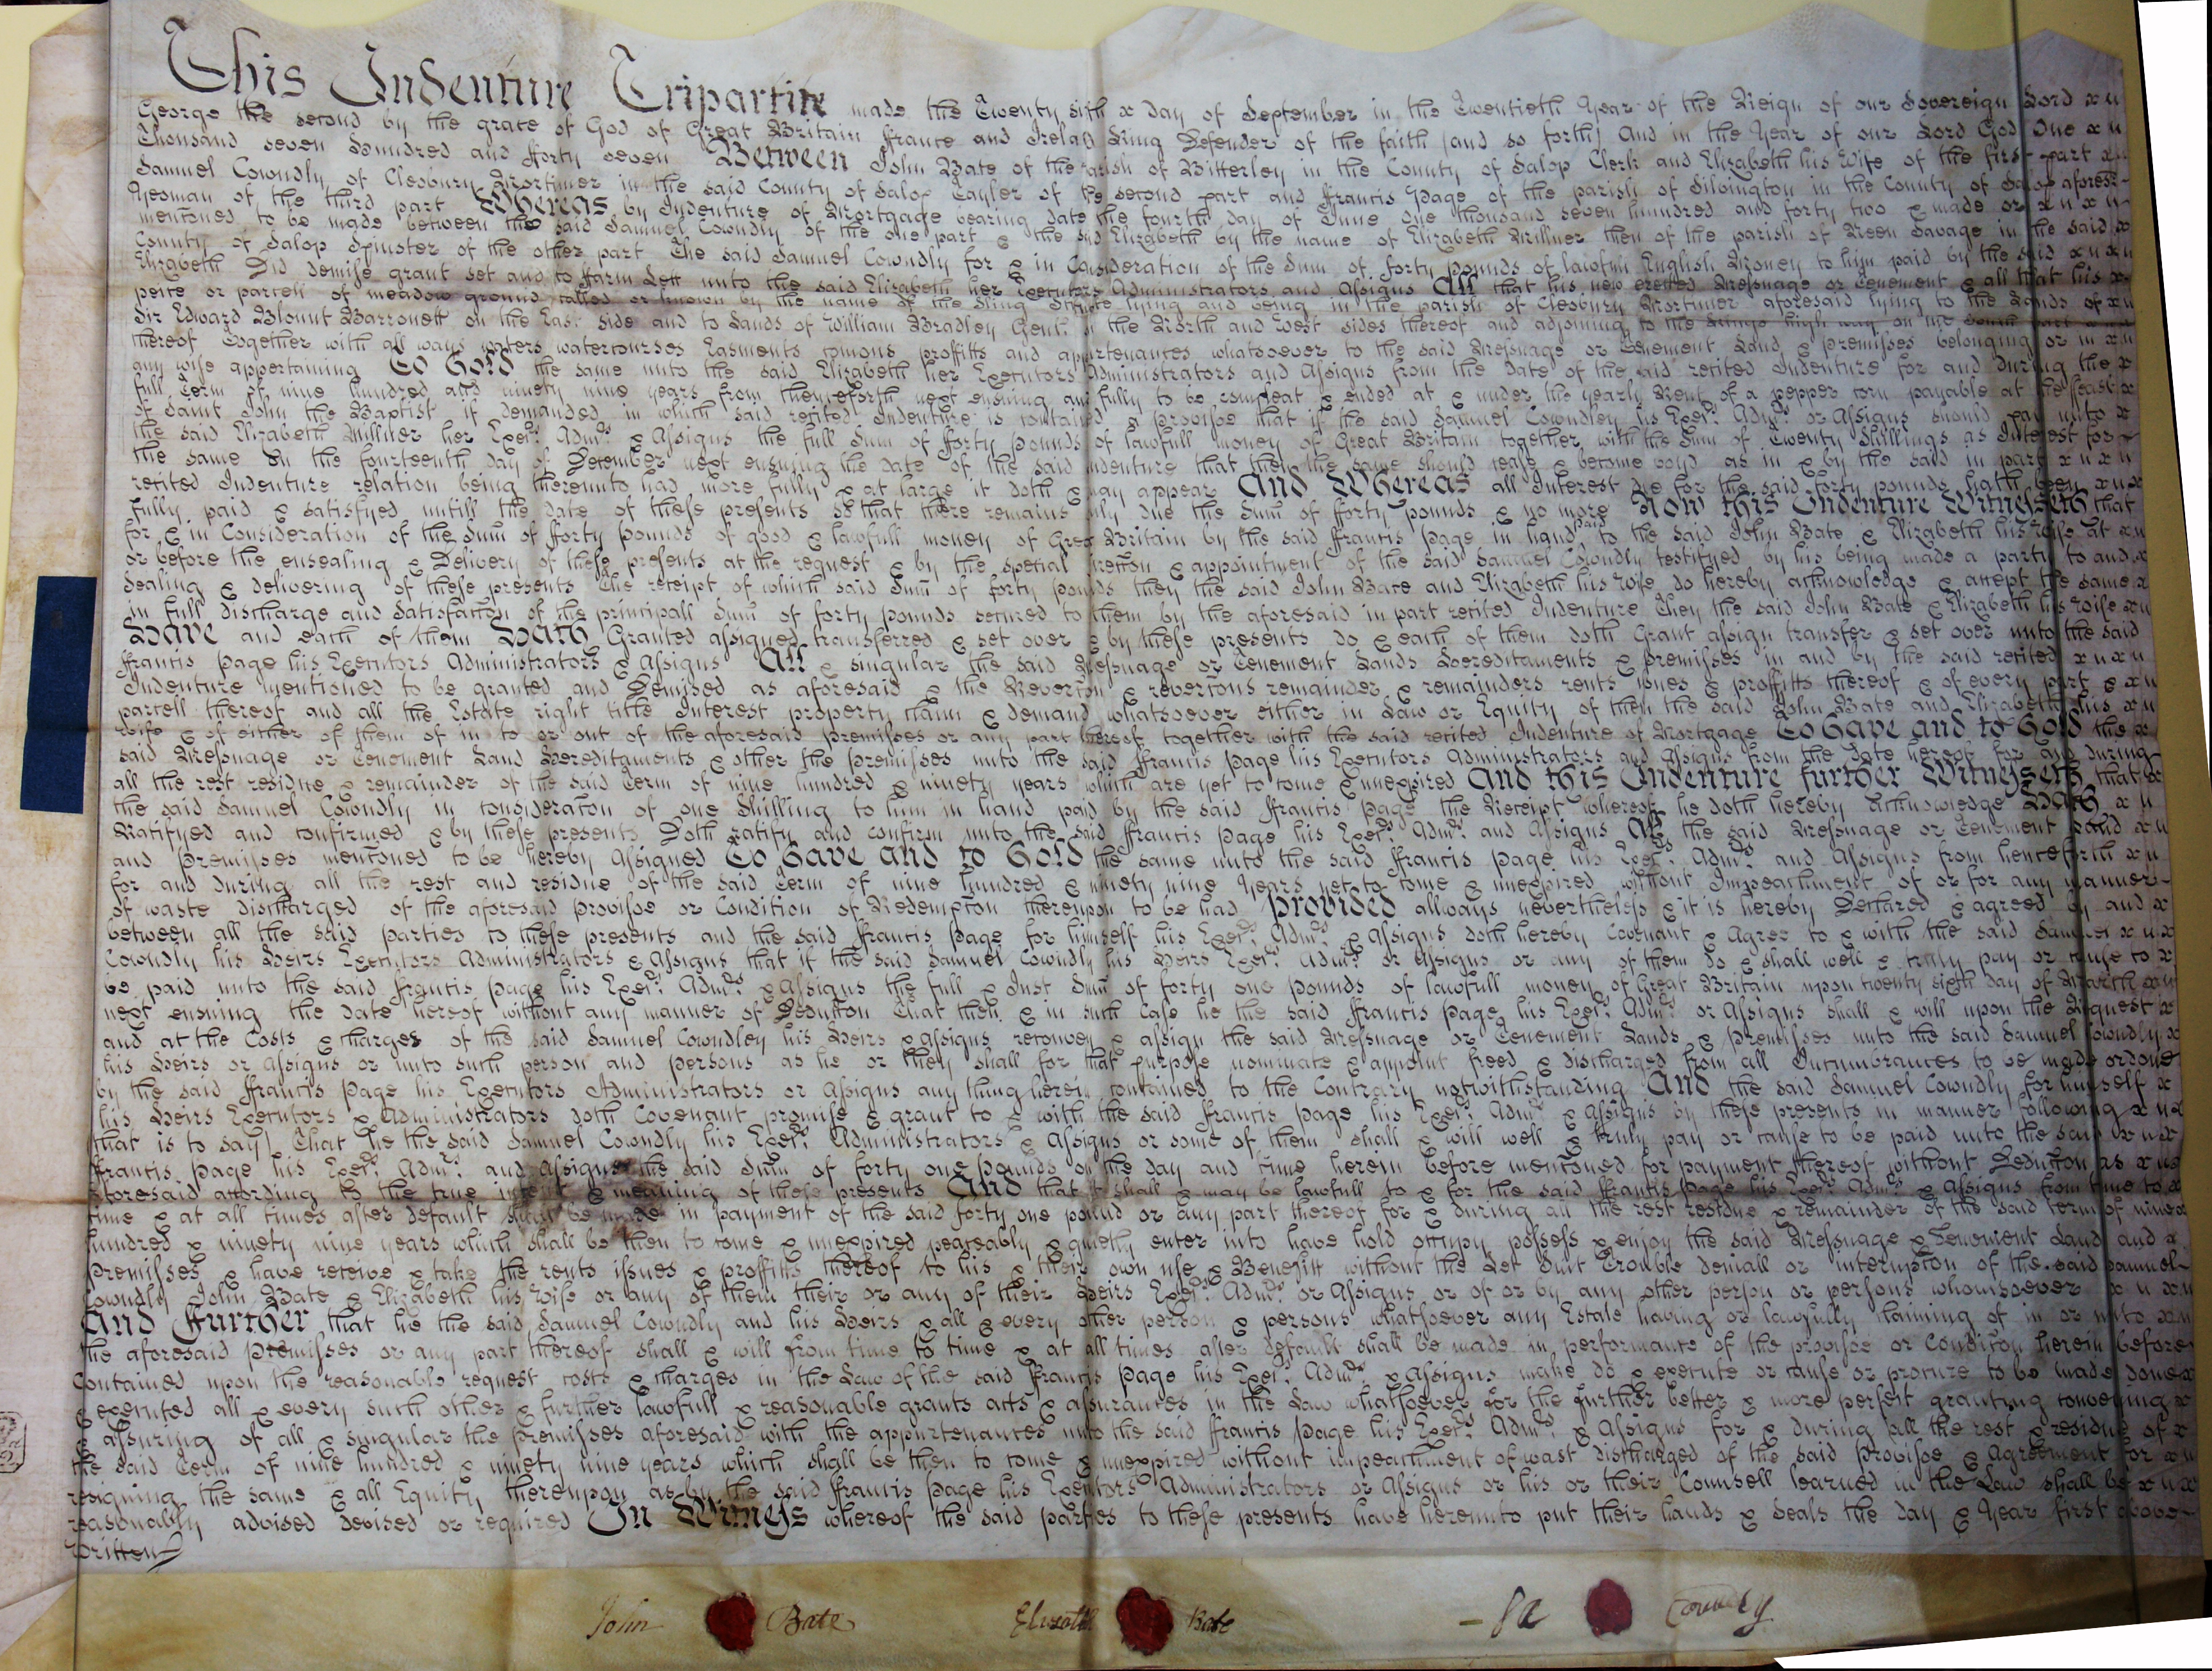 This Indenture Tripartite made the Twenty sixth x Day of September in the Twentieth Year of the Reign of our Sovereign Lord x n
George the second by the grace of God of Great Britain ffrance and Ireland King Defender of the faith (and so forth) And in the Year of our Lord God One x n
Thousand seven Hundred and fforty seven Between John Bate of the parish of Bitterley in the County of Salop Clerk and Elizabeth his Wife of the first part x n
Samuel Cowndly of Cleobury Mortimer in the said County of Salop Tayler of the second part and ffrancis Page of the parish of Silvington in the County of Salop aforesd
Yeoman of the third part Whereas by Indenture of Mortgage bearing date the fourth day of June one thousand seven hundred and forty two & made or x n x n
mentoned to be made between the said Samuel Cowndly of the one part & the said Elizabeth by the name of Elizabeth Millner then of the parish of Neen Savage in the said x
County of Salop Spinster of the other part The said Samuel Cowndly for & in Consideration of the Sum of forty pounds of lawfull English Money to him paid by the said x n x n
Elizabeth Did demise grant set and to ffarm Lett unto the said Elizabeth her Executors Administrators and Assigns All that his new erected Messuage or Tenement & all that his x
peice or parcell of meadow ground called or known by the name of the Sling Situate lying and being in the parish of Cleobury Mortimer aforesaid lying to the Lands of x n
Sir Edward Blount Barronett on the East side and to Lands of William Bradley Gent. on the North and West sides thereof and adjoining to the Kings high way on the South part x n
thereof Together with all ways waters watercourses Easments comons proffitts and appurtenances whatsoever to the said Messuage or Tenement Land & premisses belonging or in x n
any wise appertaining To Hold the same unto the said Elizabeth her Executors Administrators and Assigns from the Date of the said recited Indenture for and during the x
full Term of nine hundred and ninety nine years from thenceforth next ensuing and fully to be compleat & ended at & under the yearly Rent of a pepper corn payable at the feast x
of Saint John the Baptist if demanded in which said recited Indenture is contained a provisoe that if the said Samuel Cowndley his Exers. Adms. or Assigns should pay unto x
the said Elizabeth Millner her Exers. Adms. & Assigns the full Sum of fforty pounds of lawfull money of Great Britain together with the Sum of Twenty Shillings as Interest for
the same On the fourteenth day of December next ensuing the date of the said Indenture that then the same should cease & become voyd as in & by the said in part x n x n
recited Indenture relation being thereunto had more fully & at large it doth & may appear And Whereas all Interest due for the said forty pounds hath been x n x
fully paid & satisfyed untill the date of these presents so that there remains only due the Sum of fforty pounds & no more Now this Indenture Witnesseth that
for & in Consideration of the Sum of fforty pounds of good & lawfull money of Great Britain by the said ffrancis Page in hand paid to the said John Bate & Elizabeth his Wife at x n
or before the ensealing & Delivery of these presents at the request & by the special direction & appointment of the said Samuel Cowndly testifyed by his being made a party to and x
Sealing & delivering of these presents The receipt of which said Sum of forty pounds they the said John Bate and Elizabeth his Wife do hereby acknowledge & accept the same x
in full discharge and Satisfacton of the principall Sum of forty pounds secured to them by the aforesaid in part recited Indenture They the said John Bate & Elizabeth his Wife x n
Have and each of them Hath Granted assigned transferred & set over & by these presents do & each of them doth Grant assign transfer & set over unto the said
ffrancis Page his Executors Administrators & Assigns All & singular the said Messuage or Tenement Lands Hereditaments & premisses in and by the said recited x n x n
Indenture mentioned to be granted and Demised as aforesaid & the Reverton & revertons remainder & remainders rents issues & proffitts thereof & of every part & x n
parcell thereof and all the Estate right title Interest property claim & demand whatsoever either in Law or Equity of them the said John Bate and Elizabeth his x n
Wife & of either of them of in to or out of the aforesaid premisses or any part thereof together with the said recited Indenture of Mortgage To Have and to Hold the x
said Messuage or Tenement Land Hereditaments & other the Premisses unto the said ffrancis Page his Executors Administrators and Assigns from the date hereof for and during
all the rest residue & remainder of the said Term of nine hundred & ninety years which are yet to come & unexpired And this Indenture further Witnesseth that x
the said Samuel Cowndly in consideraton of one Shilling to him in hand paid by the said ffrancis Page the Receipt whereof he doth hereby Acknowledge Hath x n
Ratifyed and confirmed & by these presents Doth ratify and confirm unto the said ffrancis Page his Exers. Adms. and Assigns All the said Messuage or Tenement Land x n
and Premisses mentoned to be hereby Assigned To Have and to Hold the same unto the said ffrancis Page his Exers. Adms. and Assigns from henceforth x n
for and during all the rest and residue of the said Term of nine hundred & ninety nine Years yet to come & unexpired without Impeachment of or for any manner
of waste discharged of the aforesaid provisoe or Condition of Redempton thereupon to be had Provided allways nevertheless & it is hereby Declared & agreed by and x
between all the said parties to these presents and the said ffrancis Page for himself his Exers. Adms. & Assigns doth hereby Covenant & Agree to & with the said Samuel x n x
Cowndly his Heirs Executors Administrators & Assigns that if the said Samuel Cowndly his Heirs Exers. Adms. or Assigns or any of them do & shall well & truly pay or cause to x
be paid unto the said ffrancis Page his Exers. Adms. & Assigns the full & Just Sum of forty one pounds of lawfull money of Great Britain upon twenty sixth day of March x n
next ensuing the date hereof without any manner of Deducton That then & in such Case he the said ffrancis Page his Exers. Adms. or Assigns shall & will upon the Request x
and at the Costs & charges of the said Samuel Cowndley his Heirs & assigns reconvey & assign the said Messuage or Tenement Lands & Premisses unto the said Samuel Cowndly x
his Heirs or Assigns or unto such person and persons as he or they shall for that purpose nominate & appoint freed & discharged from all Incumbrances to be made or done
by the said ffrancis Page his Executors Administrators or Assigns any thing herein contained to the Contrary notwithstanding And the said Samuel Cowndly for himself x
his Heirs Executors & Administrators doth Covenant promise & grant to & with the said ffrancis Page his Exers. Adms. & Assigns by these presents in manner following x n x
(that is to say) That he the said Samuel Cowndly his Exers. Administrators & Assigns or some of them shall & will well & truly pay or cause to be paid unto the said x n x
ffrancis Page his Exers. Adms. and Assigns the said Sum of forty one pounds on the day and time herein before mentoned for payment thereof without Deducton as x n x
aforesaid according to the true intent & meaning of these presents And that it shall & may be lawfull to & for the said ffrancis Page his Exers. Adms. & Assigns from time to x
time & at all times after default shall be made in payment of the said forty one pound or any part thereof for & during all the rest residue & remainder of the said term of nine x
hundred & ninety nine years which shall be then to come & unexpired peaceably & quietly enter into have hold occupy possess & enjoy the said Messuage & Tenement Land and x
Premisses & have receive & take the rents issues & proffitts thereof to his & their own use & Benefitt without the Let Suit Trouble deniall or interrupton of the said Samuel
Cowndly John Bate & Elizabeth his Wife or any of them their or any of their Heirs Exers. Adms. or Assigns or of or by any other person or persons whomsoever x n x n
And Further that he the said Samuel Cowndly and his Heirs & all & every other person & persons whatsoever any Estate having or lawfully claiming of in or unto x n
the aforesaid Premisses or any part thereof shall & will from time to time & at all times after default shall be made in performance of the provisoe or Conditon herein before
Contained upon the reasonable request costs & charges in the Law of the said ffrancis Page his Exers. Adms. & Assigns make do & execute or cause or procure to be made done x
& executed all & every such other & further lawfull & reasonable grants acts & assurances in the Law whatsoever for the further better & more perfect granting conveying x
& assuring of all & singular the Premisses aforesaid with the appurtenances unto the said ffrancis Page his Exers. Adms. & Assigns for & during all the rest & residue of x
the said Term of nine hundred & ninety nine years which shall be then to come & unexpired without impeachment of wast discharged of the said Provisoe & Agreement for x n
resigning the same & all Equity thereupon as by the said ffrancis Page his Executors Administrators or Assigns or his or their Counsell learned in the Law shall be x n x
reasonably advised devised or required In Witness whereof the said parties to these presents have hereunto put their hands & Seals the day & Year first above
Written
John Bate Elizabth Bate Sa Cowndly